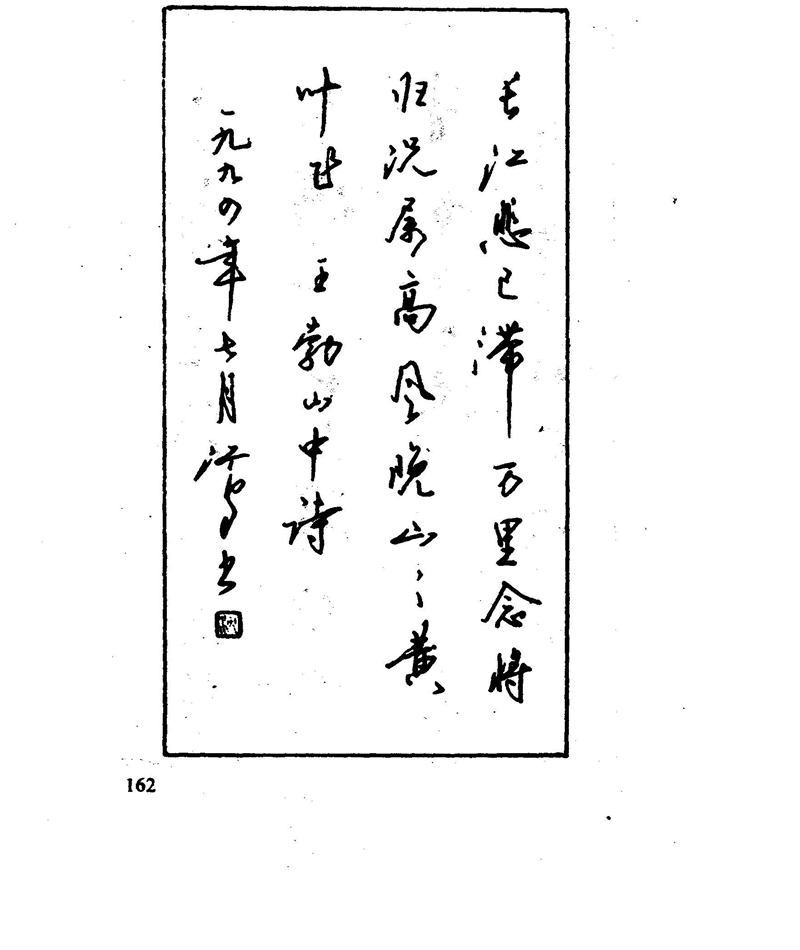 长江悲已滞万里念将
归况属高风晚山山黄
叶飞 王勃山中诗
一九九四年七月江鸟书
162